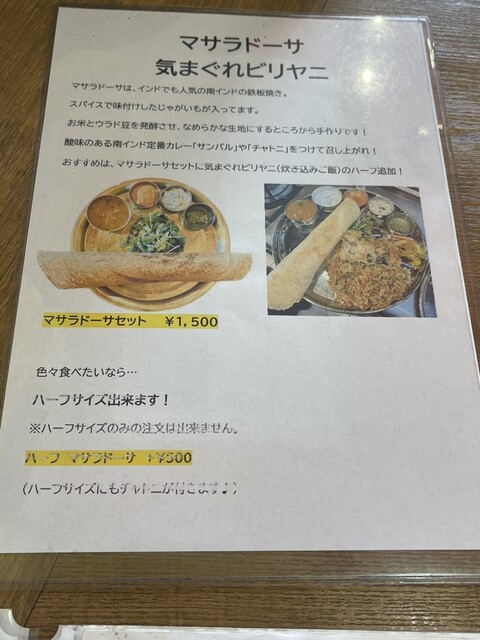 マサラドーサ
気まぐれビリヤニ
マサラドーサは、インドでも人気の南インドの鉄板焼き。
スパイスで味付けしたじゃがいもが入ってます。
お米とウラド豆を発酵させ、なめらかな生地にするところから手作りです！
酸味のある南インド定番カレー「サンバル」や「チャトニ」をつけて召し上がれ！
おすすめは、マサラドーサセットに気まぐれビリヤニ(炊き込みご飯)のハーフ追加！
マサラドーサセット ￥1,500
色々食べたいなら…
ハーフサイズ出来ます！
※ハーフサイズのみの注文は出来ません。
ハーフ マサラドーサ +￥500
(ハーフサイズにもチャトニが付きます♪)